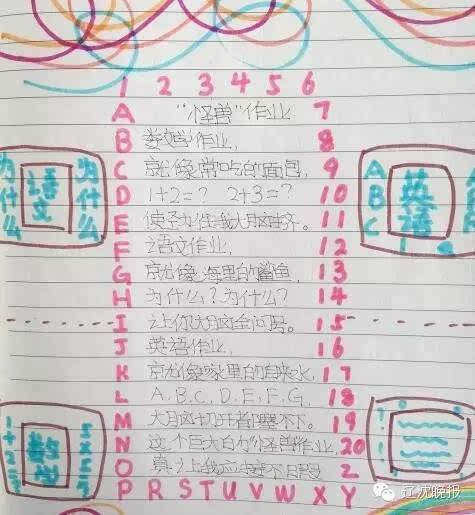 1 2 3 4 5 6
A "怪兽"作业 7
B 数学作业, 8
C 就像常吃的面包, 9
D 1+2=? 2+3=? 10
E 使劲往我大脑里挤。 11
F 语文作业, 12
G 就像海里的鲨鱼, 13
H 为什么?为什么? 14
I 让你大脑全问号。 15
J 英语作业, 16
K 就像家里的自来水, 17
L A、B、C、D、E、F、G、 18
M 大脑切开都塞不下。 19
N 这个巨大的"怪兽"作业, 20
O 真让我应接不暇 2
P R S T U V W X Y
为什么
语文
为什么
A B C
英语
数学
辽沈晚报